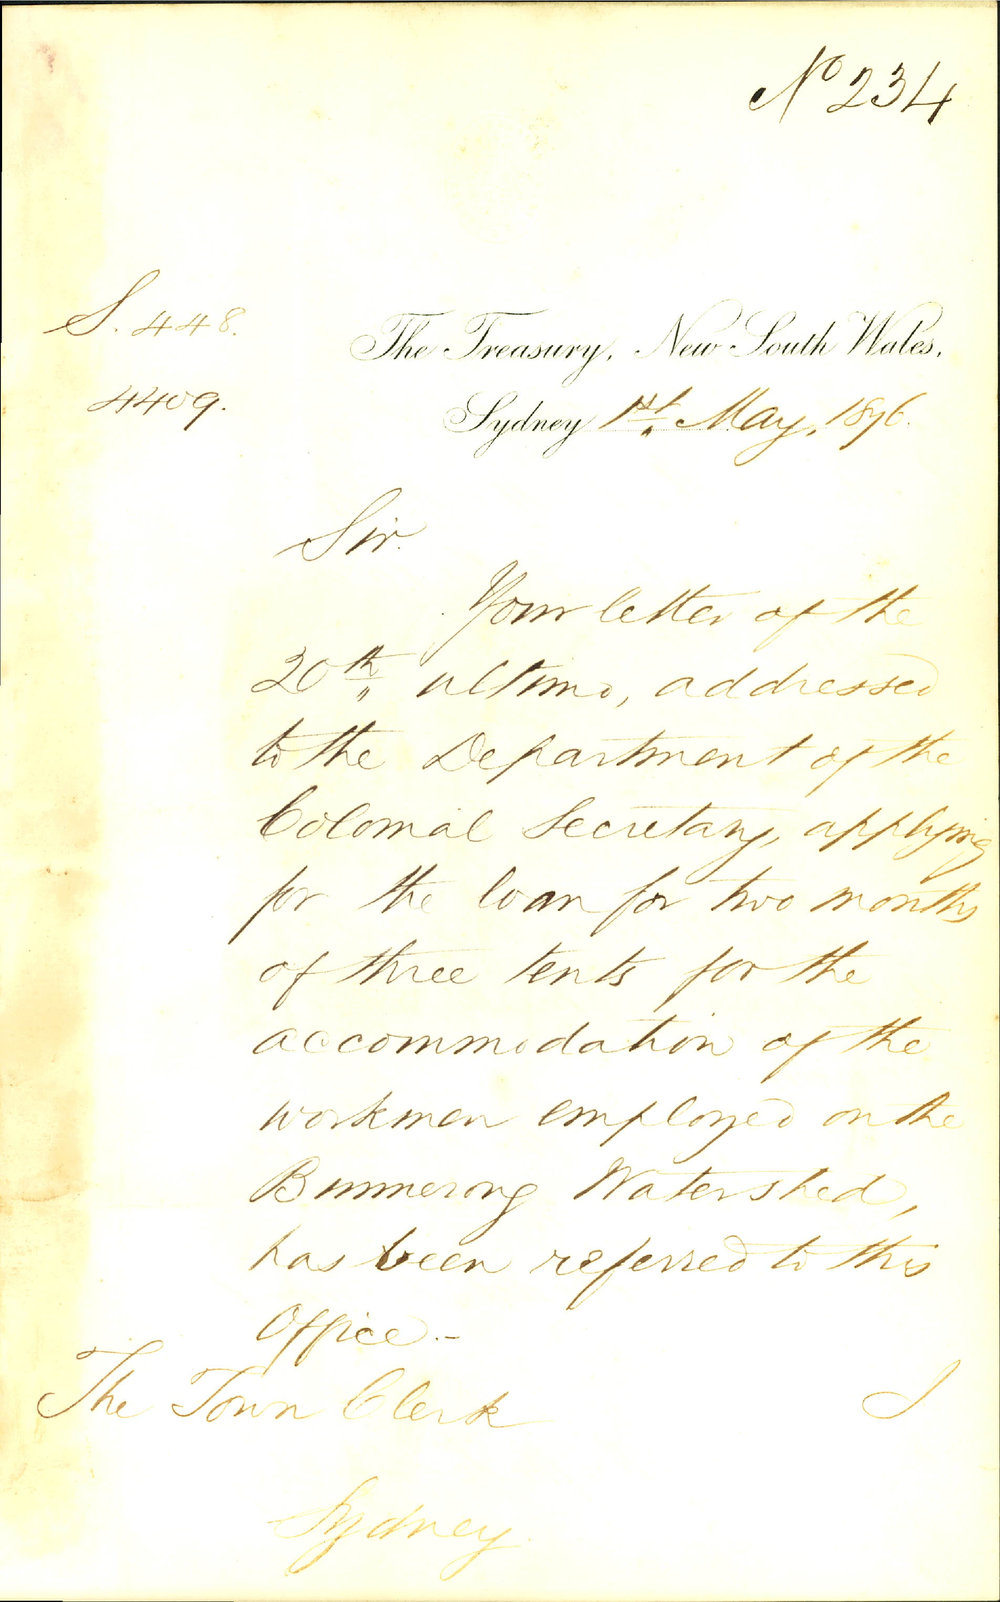 No 234
S. 448.
4409.
The Treasury, New South Wales,
Sydney 1st May, 1876.
Sir.
Your letter of the
20th ultimo, addressed
to the Department of the
Colonial Secretary, applying
for the loan for two months
of three tents for the
accommodation of the
workmen employed on the
Bunnerong Watershed,
has been referred to this
Office.-
The Town Clerk
Sydney
I